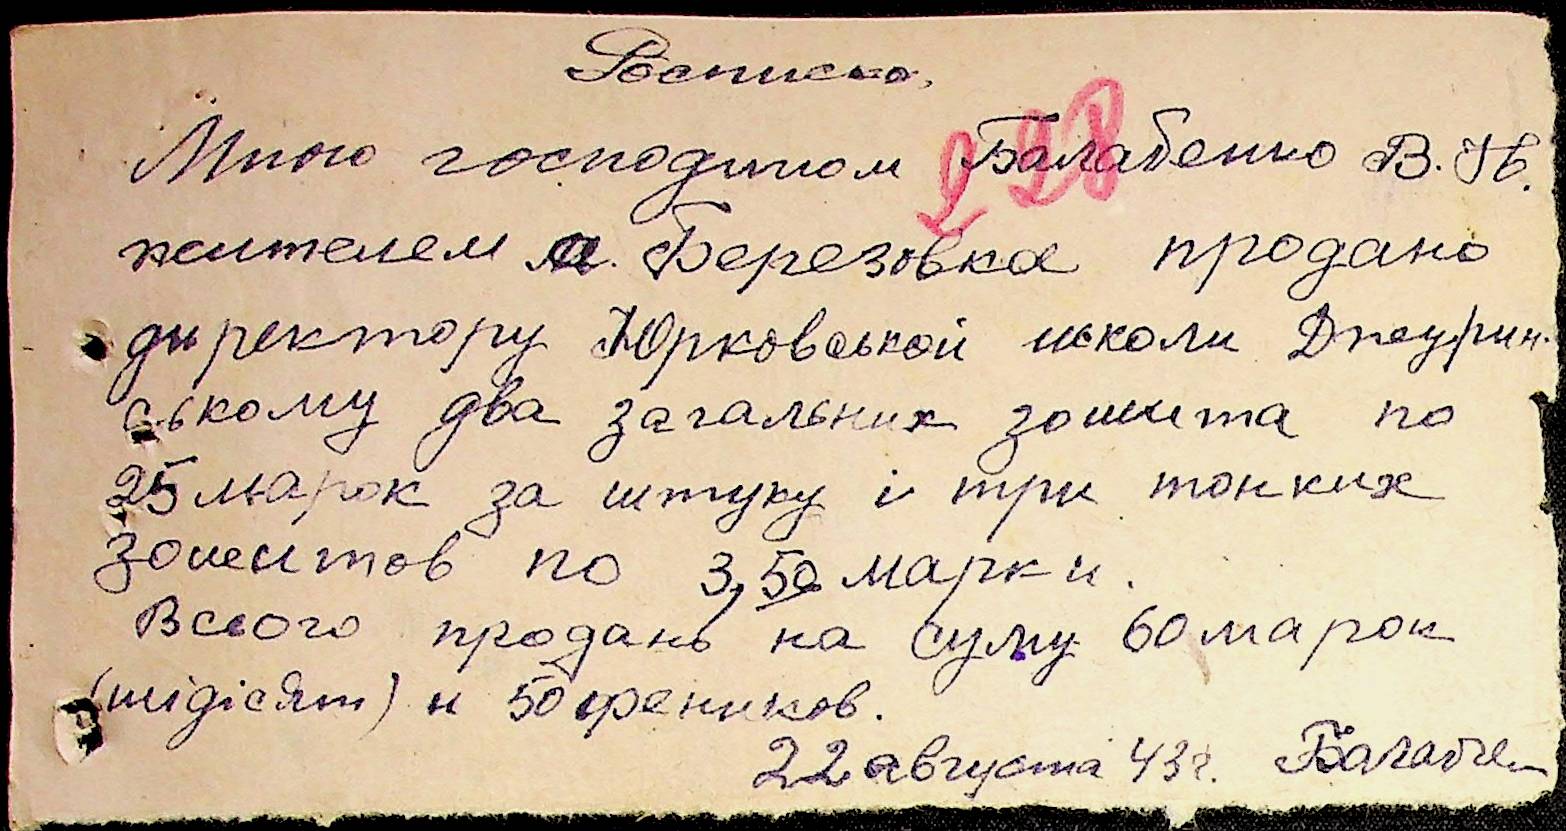 Росписка.
Мною господином Балабенко В. Н.
жителем м. Березовка продано
директору Юрковськой школи Джурин-
ському два загальних зошита по
25 марок за штуку і три тонких
зошитов по 3,50 марки.
Всього продань на суму 60 марок
(шідісят) и 50 феников.
22 августа 43 г. Балабен
228